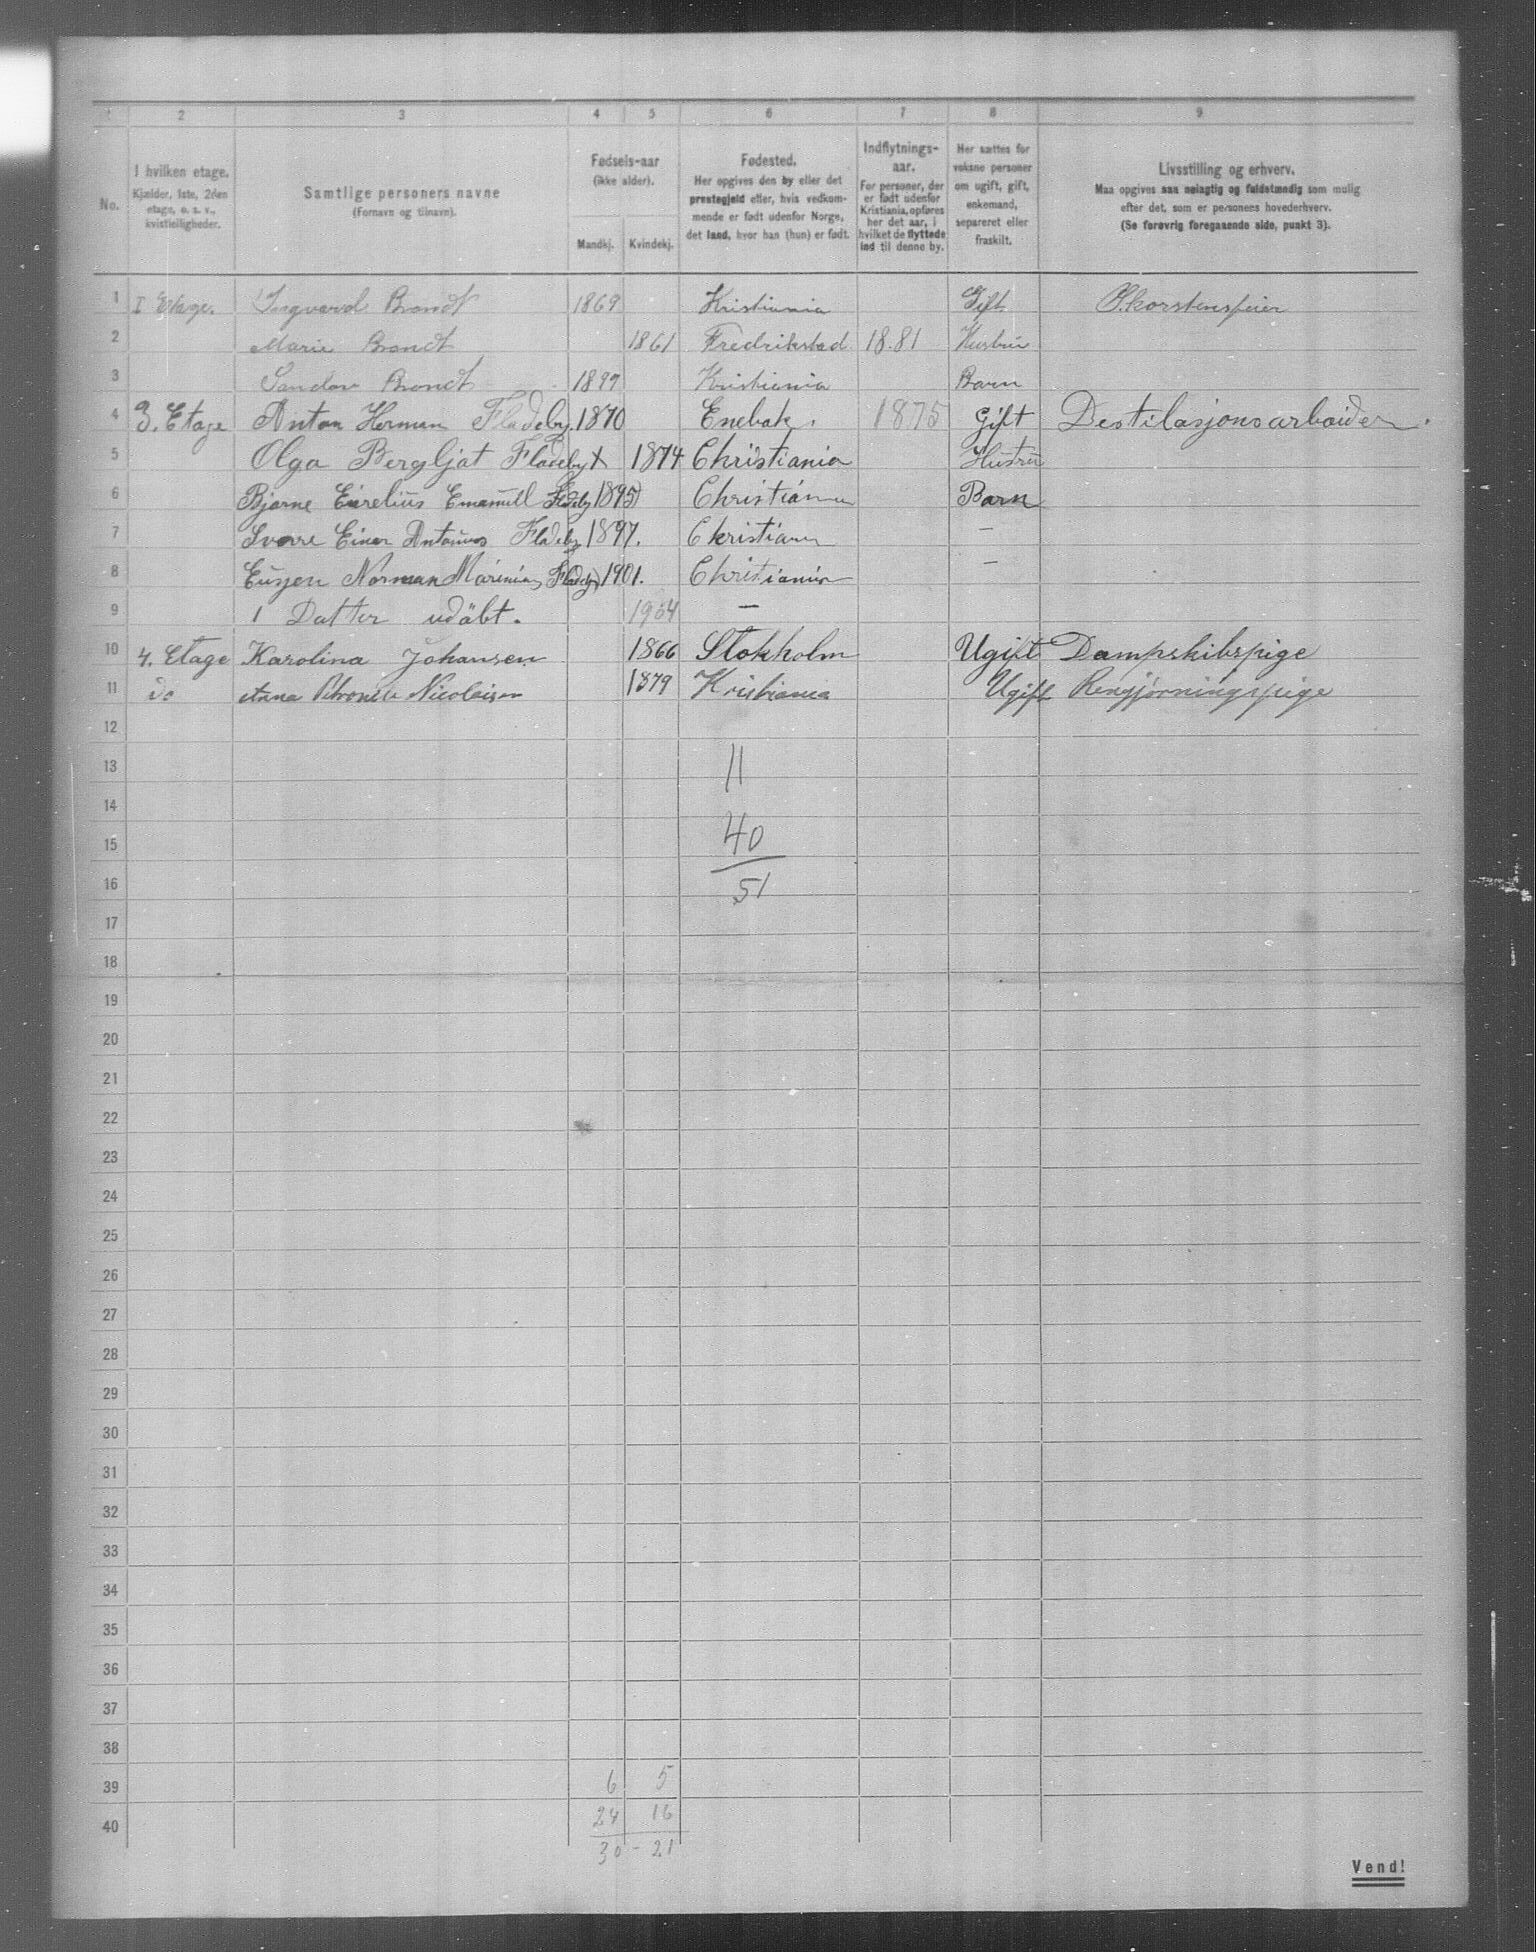 1 2 3 4 5 6 7 8 9
No. I hvilken etage. Kjælder, 1ste, 2den etage, o. s. v., kvistleiligheder. Samtlige personers navne (Fornavn og tilnavn). Fødsels-aar (ikke alder). Mandkj. Kvindekj. Fødested. Her opgives den by eller det prestegjeld eller, hvis vedkommende er født udenfor Norge, det land, hvor han (hun) er født. Indflytnings-aar. For personer, der er født udenfor Kristiania, opføres her det aar, i hvilket de flyttede ind til denne by. Her sættes for voksne personer om ugift, gift, enkemand, separeret eller fraskilt. Livsstilling og erhverv. Maa opgives saa nøiagtig og fuldstændig som mulig efter det, som er personens hovederhverv. (Se forøvrig foregaaende side, punkt 3).
1 I Etage. Ingvard Brandt 1869 Kristiania Gift Skorstensfeier
2 Marie Brandt 1861 Fredrikstad 18.81 Hustru
3 Sandor Brandt 1899 Kristiania Barn
4 3. Etage Anton Herman Fladeby. 1870 Enebak. 1875 Gift Destilasjonsarbeider.
5 Olga Bergljot Fladeby x 1874 Christiania Hustru
6 Bjarne Eurelius Emanuell Fladeby 1895 Christiania Barn
7 Sverre Einar Antonius Fladeby 1897. Christiania —
8 Eugen Norman Marinius Fladeby 1901. Christiania —
9 1 Datter udöbt. 1904 —
10 4. Etage Karolina Johansen 1866 Stokholm Ugift Dampskibspige
11 do Anna Nicolaisen 1879 Kristiania Ugift Rengjörningspige
12
13 11
14
15 40
16 51
17
18
19
20
21
22
23
24
25
26
27
28
29
30
31
32
33
34
35
36
37
38
39 6 5
40 24 16
30 - 21
Vend!